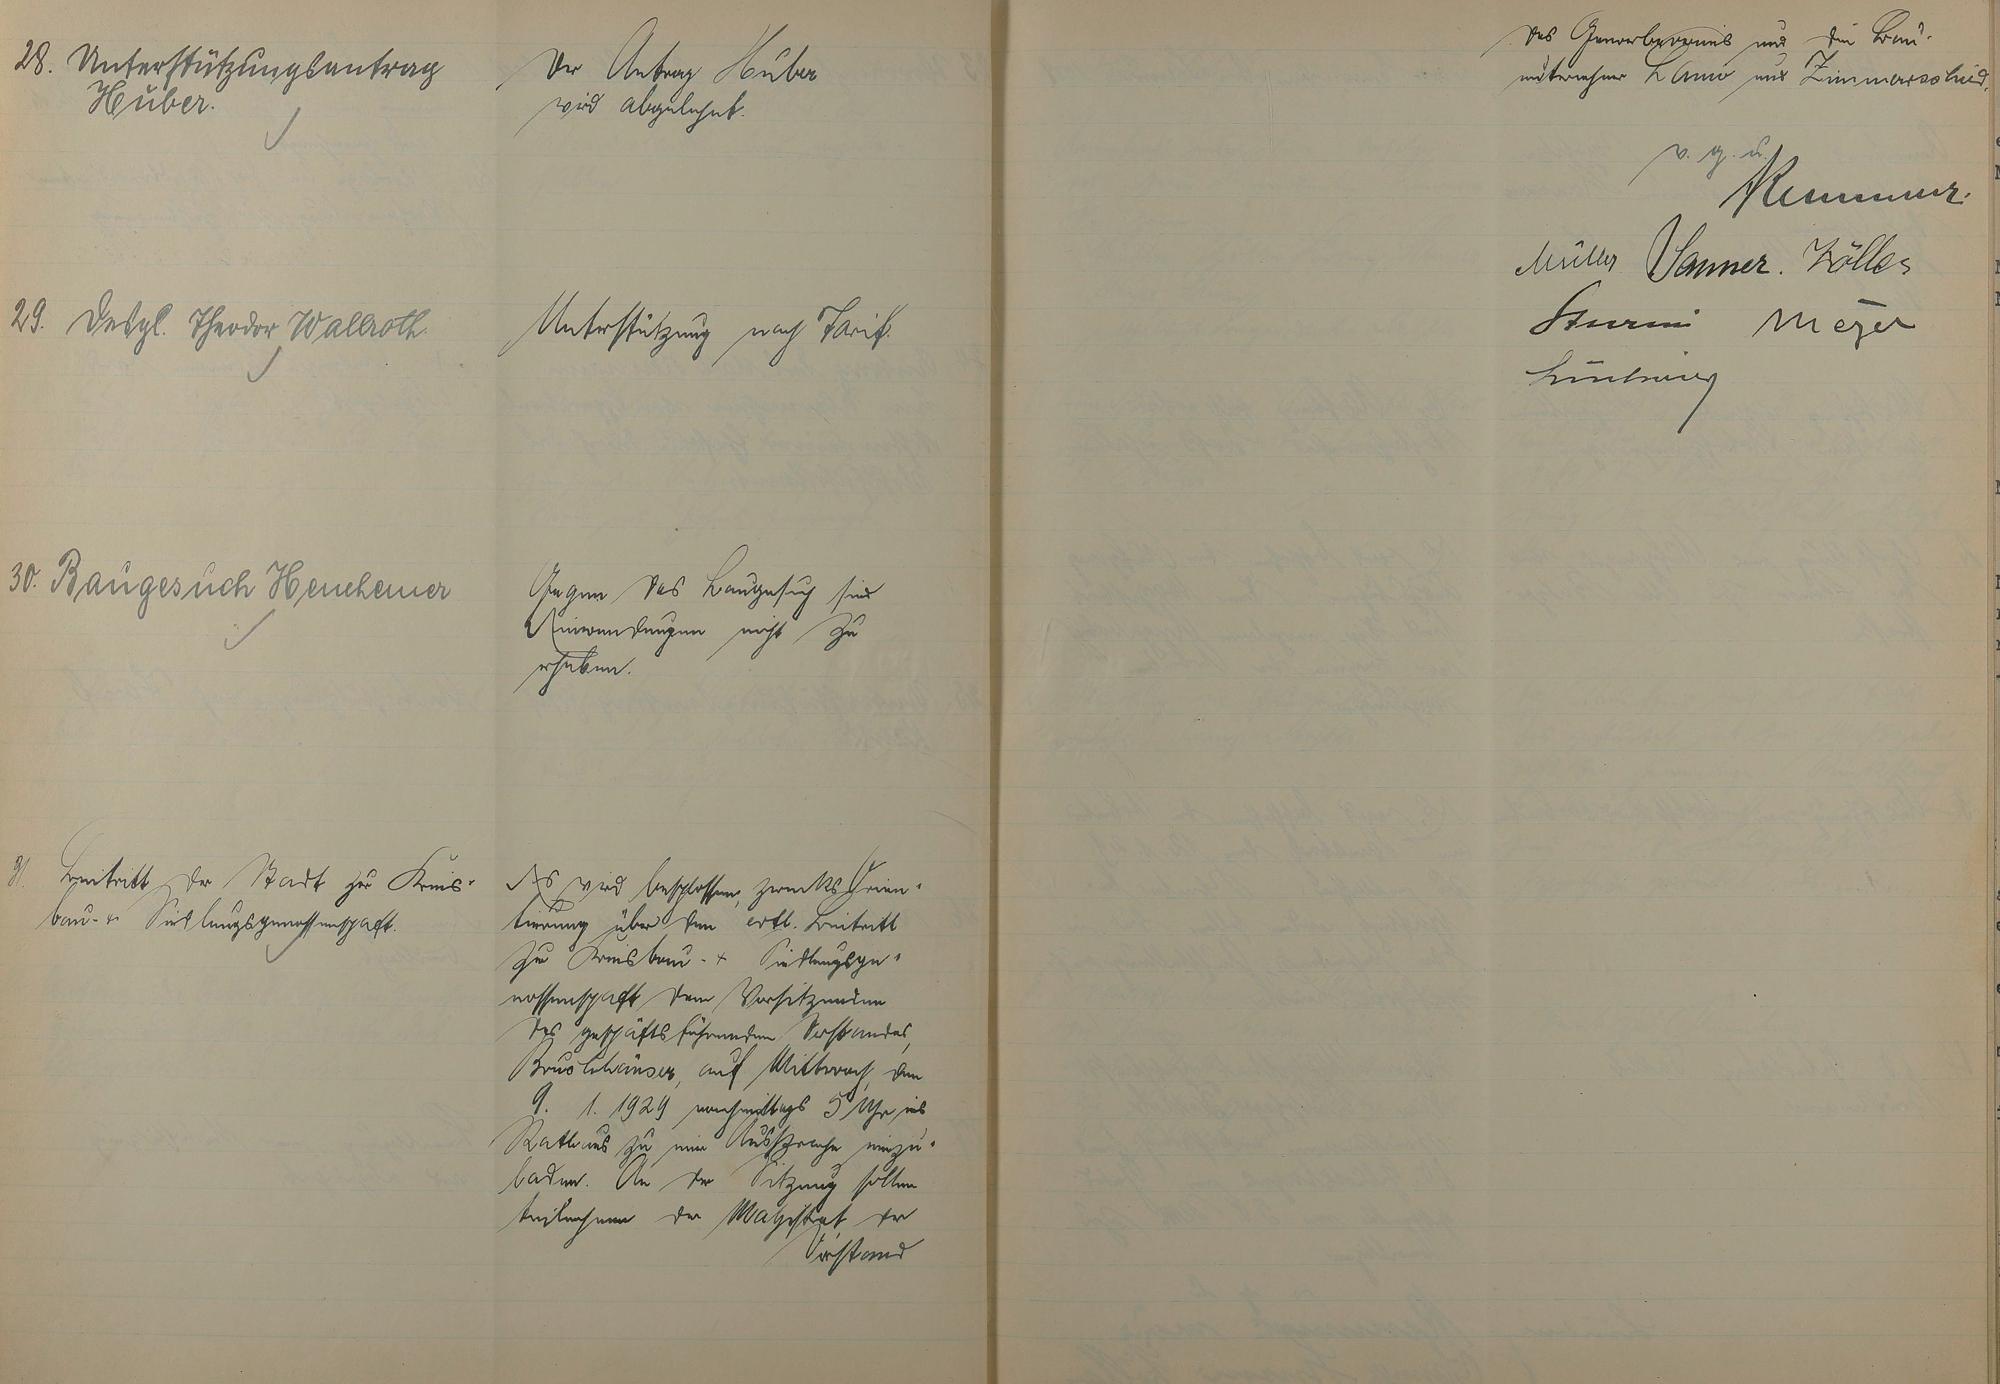 28. Unterstützungsantrag
Huber.
Der Antrag Huber
wird abgelehnt.
29. Desgl. Theodor Wallroth.
Unterstützung nach Tarif.
30. Baugesuch
Gegen das Baugesuch sind
Einwendungen nicht zu
erheben.
31. Beitritt der Stadt zur Kreis-
bau- & Siedlungsgenossenschaft.
Es wird beschlossen, zwecks Orien-
tierung über den evtl. Beitritt
zur Kreisbau- & Siedlungsge-
nossenschaft den Vorsitzenden
des geschäftsführenden Vorstandes,
auf Mittwoch, den
9. 1. 1929 nachmittags 5 Uhr ins
Rathaus zu einer Aussprache einzu-
laden. An der Sitzung sollen
teilnehmen der Magistrat, der
Vorstand
des Gewerbevereins und die Bau-
unternehmer und Zimmerschied.
v. g. u.
Müller Sanner. Zöller
Sturm Meyer